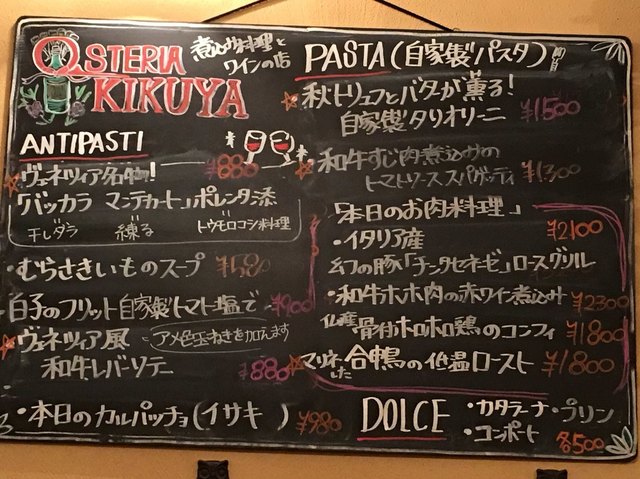 OSTERIA
KIKUYA
煮込み料理と
ワインの店
ANTIPASTI
ヴェネツィア名物! ¥880
「バッカラ マンテカート」ポレンタ添
干しダラ 練る トウモロコシ料理
・むらさきいものスープ ¥580
白子のフリット自家製トマト塩で ¥900
ヴェネツィア風 アメ色玉ねぎを加えます
和牛レバーソテー ¥880
・本日のカルパッチョ(イサキ ) ¥980
PASTA(自家製パスタ)
秋トリュフとバターが薫る!
自家製タリオリーニ ¥1500
和牛すじ肉煮込みの
トマトソーススパゲッティ ¥1300
「本日のお肉料理」
・イタリア産 ¥2100
幻の豚「チンタセネーゼ」ロースグリル
・和牛ホホ肉の赤ワイン煮込み ¥2300
仏産 骨付ホロホロ鶏のコンフィ ¥1800
マリネした 合鴨の低温ロースト ¥1800
DOLCE ・カタラーナ・プリン
・コンポート 各500